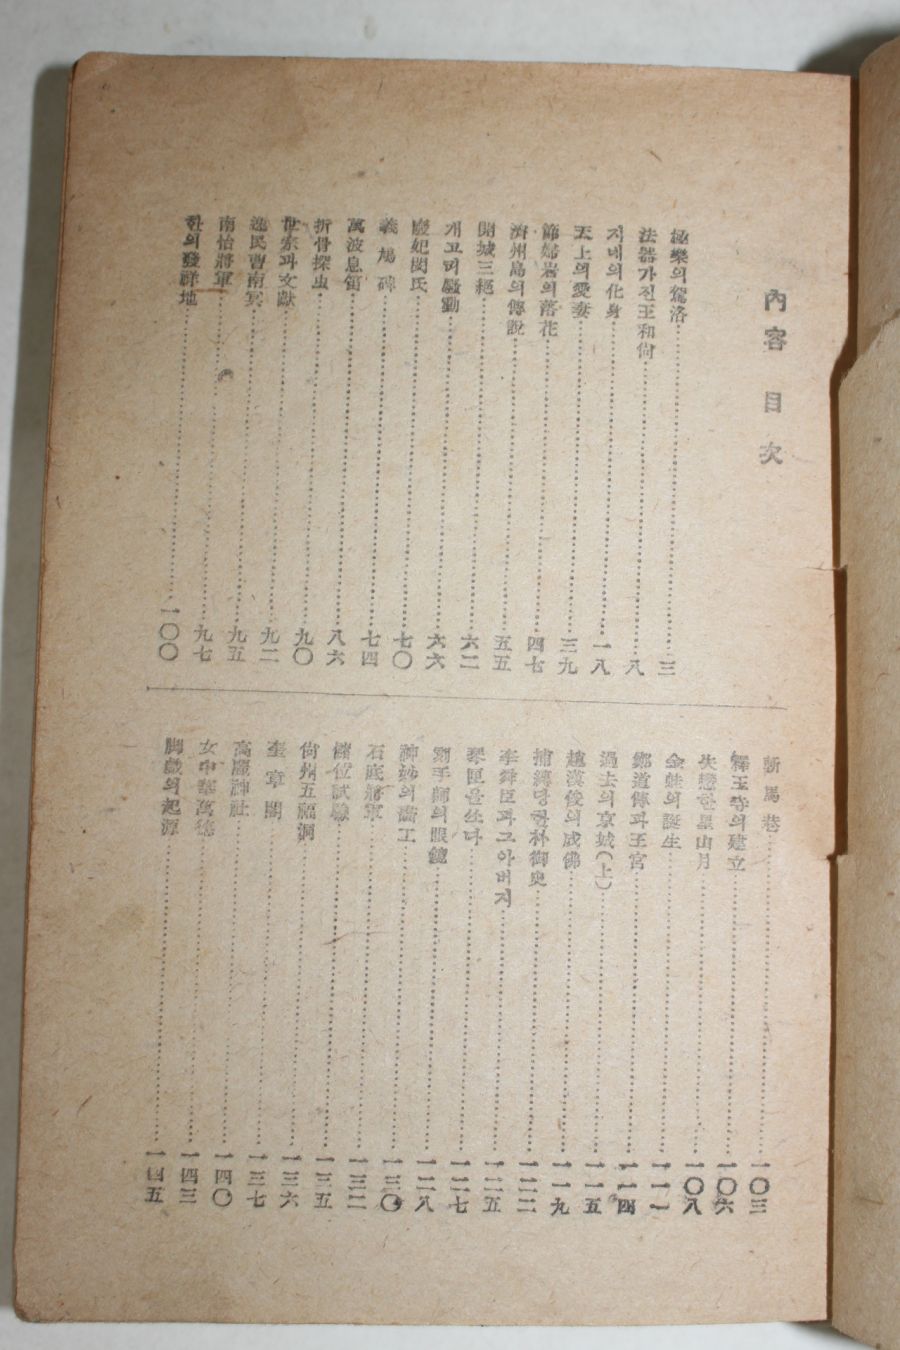 內容目次
極樂의駕洛……三
法器가진王和尙……八
지네의化身……一八
天上의愛妻……三九
節婦岩의落花……四七
濟州島의傳說……五五
開城三絕……六二
개고리騷動……六六
廢妃閔氏……七〇
義鳩碑……七四
萬波息笛……八六
折骨探虫……九〇
世宗과文獻……九二
逸民曹南冥……九五
南怡將軍……九七
한의發祥地……一〇〇
斬馬巷……一〇三
釋王寺의建立……一〇六
失戀한星山月……一〇八
金蛙의誕生……一一一
鄭道傳과王宮……一一四
過去의京城(上)……一一五
趙漢俊의成佛……一一九
捕縛당한朴御史……一二二
李舜臣과그아버지……一二五
琴匣을쏘다……一二七
劊子師의眼鏡……一二八
神妙의畵工……一三〇
石底將軍……一三二
儲位試驗……一三五
尙州五福洞……一三六
奎章閣……一三七
高靈神社……一四〇
女中華萬德……一四三
脚戱의起源……一四五